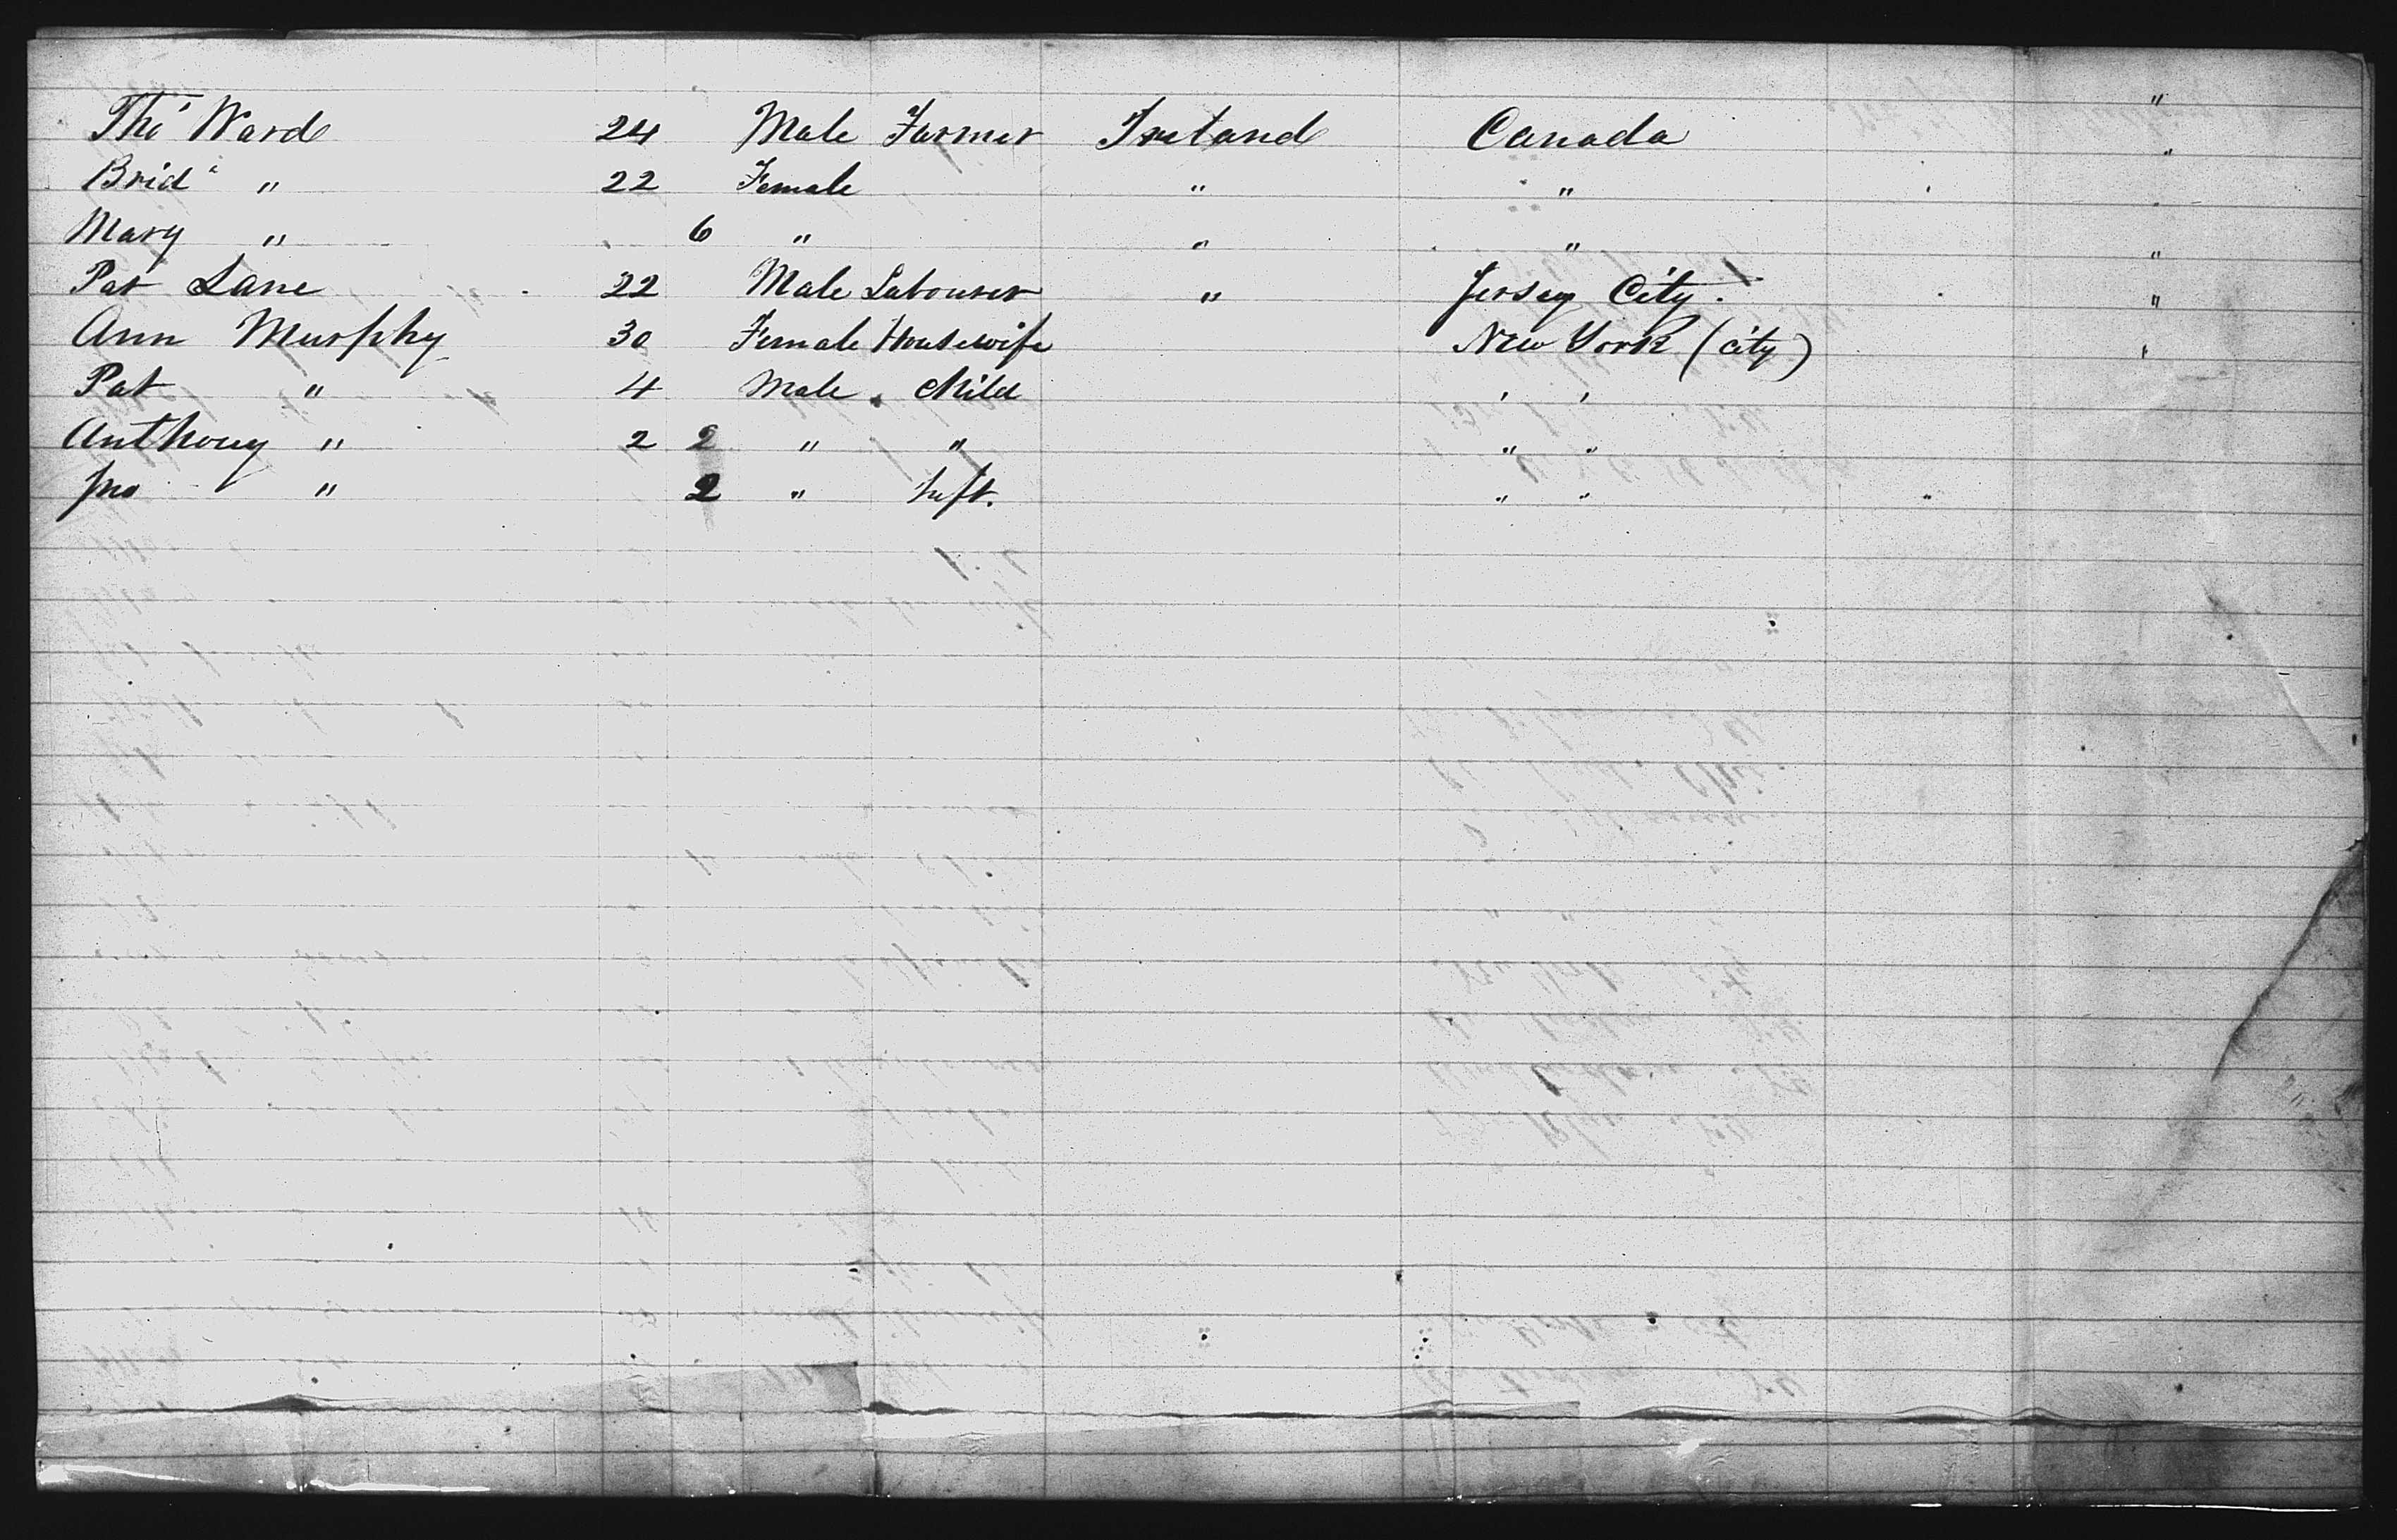 Tho Ward 24 Male Farmer Ireland Canada "
Brid " 22 Female " " "
Mary " 6 " " " "
Pat Lane 22 Male Labourer " Jersey City. "
Ann Murphy 30 Female Housewife New York (city) "
Pat " 4 Male Child " "
Anthony " 2 2 " " " "
Jno " 2 " Inft. " "